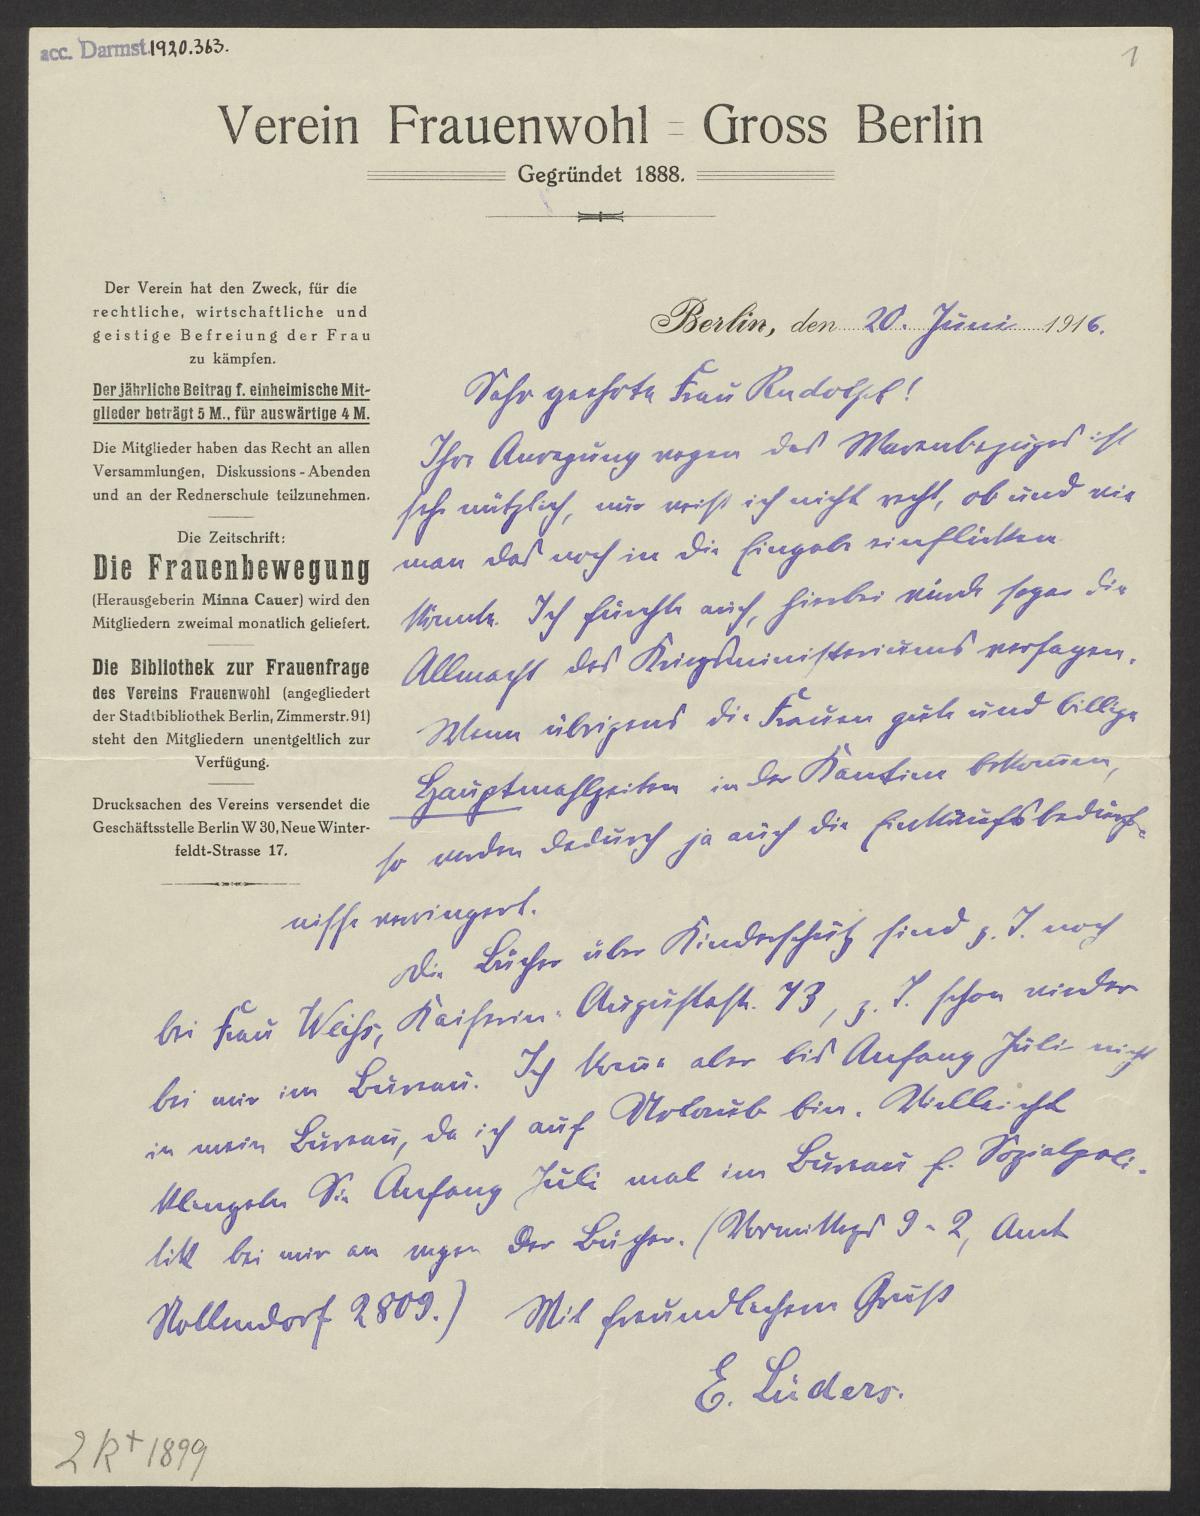 acc. Darmst. 1920.363.
1
Verein Frauenwohl = Gross Berlin
Gegründet 1888.
Der Verein hat den Zweck, für die
rechtliche, wirtschaftliche und
geistige Befreiung der Frau
zu kämpfen.
Der jährliche Beitrag f. einheimische Mit-
glieder beträgt 5 M., für auswärtige 4 M.
Die Mitglieder haben das Recht an allen
Versammlungen, Diskussions-Abenden
und an der Rednerschule teilzunehmen.
Die Zeitschrift:
Die Frauenbewegung
(Herausgeberin Minna Cauer) wird den
Mitgliedern zweimal monatlich geliefert.
Die Bibliothek zur Frauenfrage
des Vereins Frauenwohl (angegliedert
der Stadtbibliothek Berlin, Zimmerstr. 91)
steht den Mitgliedern unentgeltlich zur
Verfügung.
Drucksachen des Vereins versendet die
Geschäftsstelle Berlin W 30, Neue Winter-
feldt-Strasse 17.
Berlin, den 20. Juni 1916.
Sehr geehrte Frau Rudolph!
Ihre Anregung wegen des Warenbezuges ist
sehr nützlich, nur weiß ich nicht recht, ob und wie
man das noch in die Eingabe einflicken
könnte. Ich fürchte auch, hierbei würde sogar die
Allmacht des Kriegsministeriums versagen.
Wenn übrigens die Frauen gute und billige
Hauptmahlzeiten in der Kantine bekommen,
so werden dadurch ja auch die Einkaufsbedürf-
nisse verringert.
Die Bücher über Kinderschutz sind z. T. noch
bei Frau Weihs, Kaiserin-Augustastr. 73, z. T. schon wieder
bei mir im Bureau. Ich komme aber bis Anfang Juli nicht
in mein Bureau, da ich auf Urlaub bin. Vielleicht
klingeln Sie Anfang Juli mal im Bureau f. Sozialpoli-
tik bei mir an wegen der Bücher. (Vormittags 9-2, Amt
Nollendorf 2809.) Mit freundlichem Gruß
E. Lüders.
2 K+ 1899